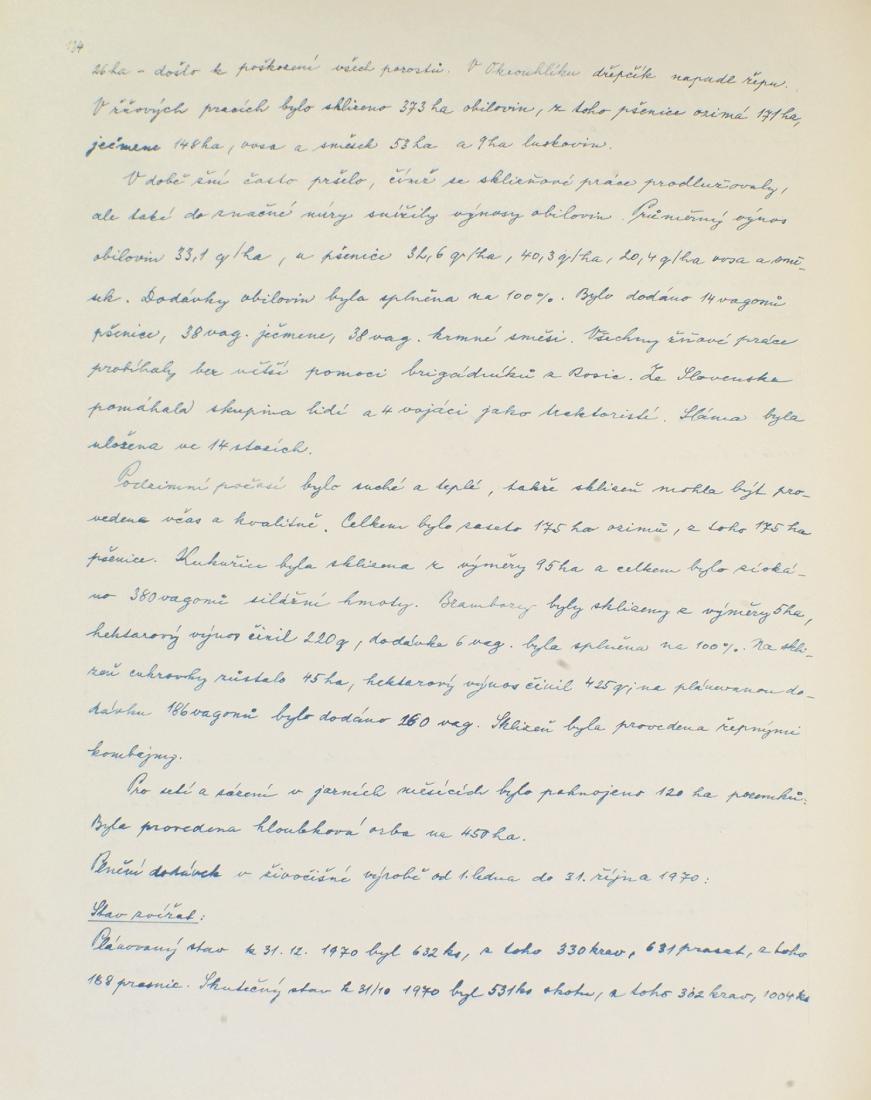 134
26 ha – došlo k poškození všech porostů. V Okrouhlíku dřepčík napadl řepu.
V žňových pracích bylo sklizeno 373 ha obilovin, z toho pšenice ozimá 171 ha,
ječmene 148 ha, ovsa a směsek 53 ha a 9 ha luskovin.
V době žní často pršelo, čímž se sklizňové práce prodlužovaly,
ale také do značné míry snížily výnosy obilovin. Průměrný výnos
obilovin 33,1 q/ha, u pšenice 32,6 q/ha, 40,3 q/ha, 20,4 q/ha ovsa a smě-
sek. Dodávky obilovin byla splněna na 100%. Bylo dodáno 14 vagonů
pšenice, 38 vag. ječmene, 38 vag. krmné směsi. Všechny žňové práce
probíhaly bez větší pomoci brigádníků z Rosic. Ze Slovenska
pomáhala skupina lidí a 4 vojáci jako traktoristé. Sláma byla
uložena ve 14 stozích.
Podzimní počasí bylo suché a teplé, takže sklizeň mohla být pro-
vedena včas a kvalitně. Celkem bylo zaseto 175 ha ozimů, z toho 175 ha
pšenice. Kukuřice byla sklizena z výměry 95 ha a celkem bylo siloká-
no 380 vagonů silážní hmoty. Brambory byly sklizeny z výměry 5 ha,
hektarový výnos činil 220 q, dodávka 6 vag. byla splněna na 100%. Na skli-
zeň cukrovky zůstalo 45 ha, hektarový výnos činil 425 q; na plánovanou do-
dávku 186 vagonů bylo dodáno 160 vag. Sklizeň byla provedena řepnými
kombajny.
Pro setí a sázení v jarních měsících bylo pohnojeno 120 ha pozemků.
Byla provedena hloubková orba na 450 ha.
Plnění dodávek v živočišné výrobě od 1. ledna do 31. října 1970:
Stav zvířat:
Plánovaný stav k 31. 12. 1970 byl 632 ks, z toho 330 krav, 631 prasat, z toho
188 prasnic. Skutečný stav k 31/10 1970 byl 531 ks skotu, z toho 302 krav, 1004 ks